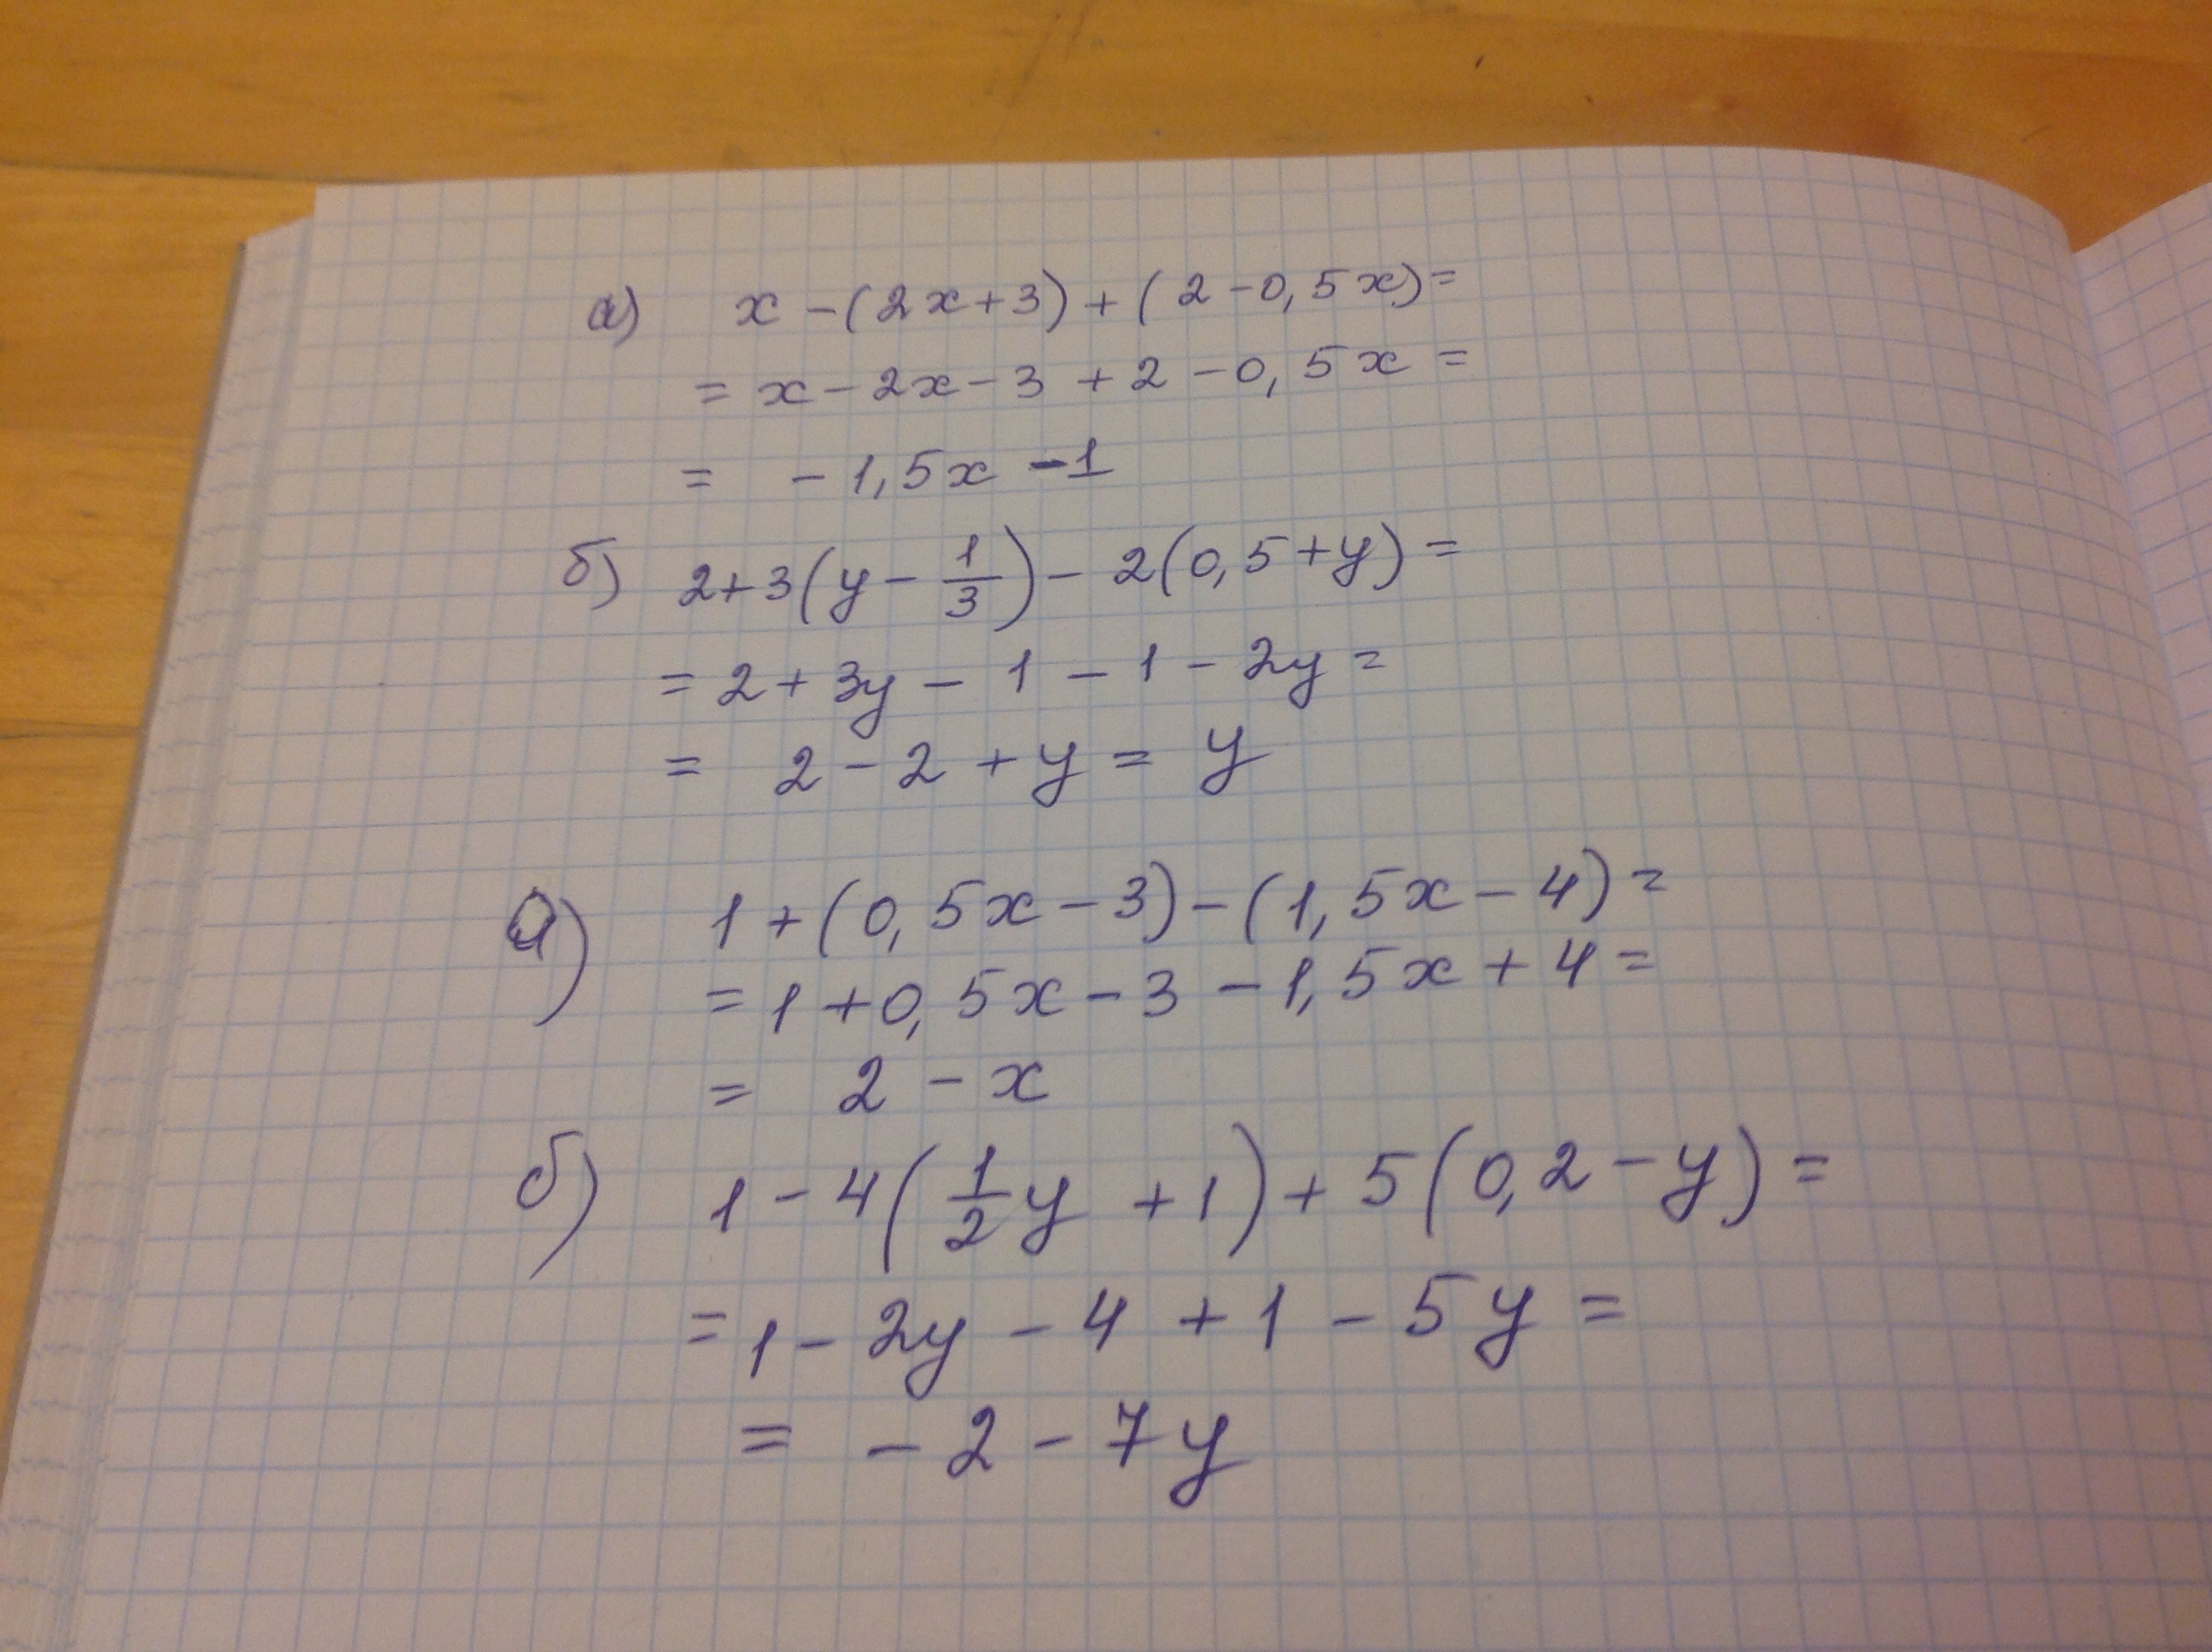 а) x - (2x+3) + (2-0,5x) =
= x - 2x - 3 + 2 - 0,5x =
= -1,5x - 1
б) 2+3(y - 1/3) - 2(0,5+y) =
= 2 + 3y - 1 - 1 - 2y =
= 2 - 2 + y = y
а) 1 + (0,5x - 3) - (1,5x - 4) =
= 1 + 0,5x - 3 - 1,5x + 4 =
= 2 - x
б) 1 - 4(1/2y + 1) + 5(0,2 - y) =
= 1 - 2y - 4 + 1 - 5y =
= -2 - 7y